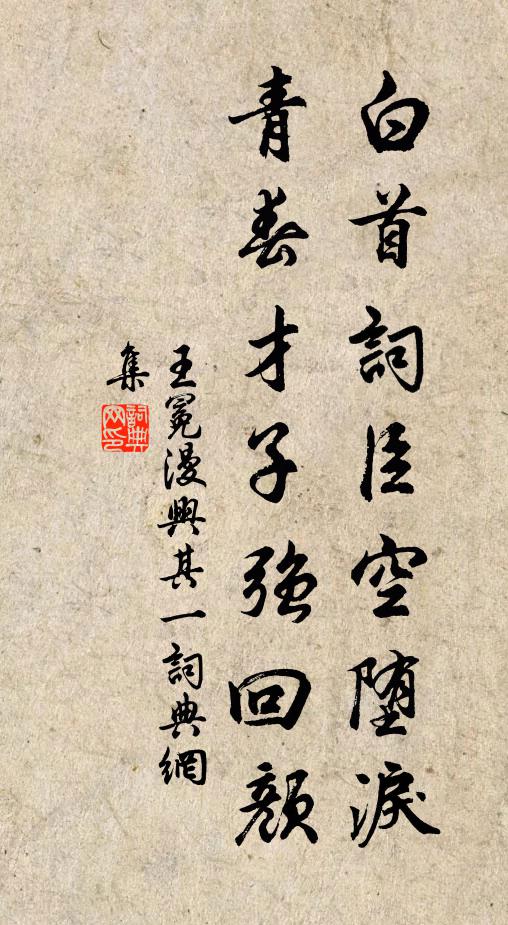 白首詞臣空堕淚
青春才子強回顔
王冕漫興其一詞典網
集
詞典網印